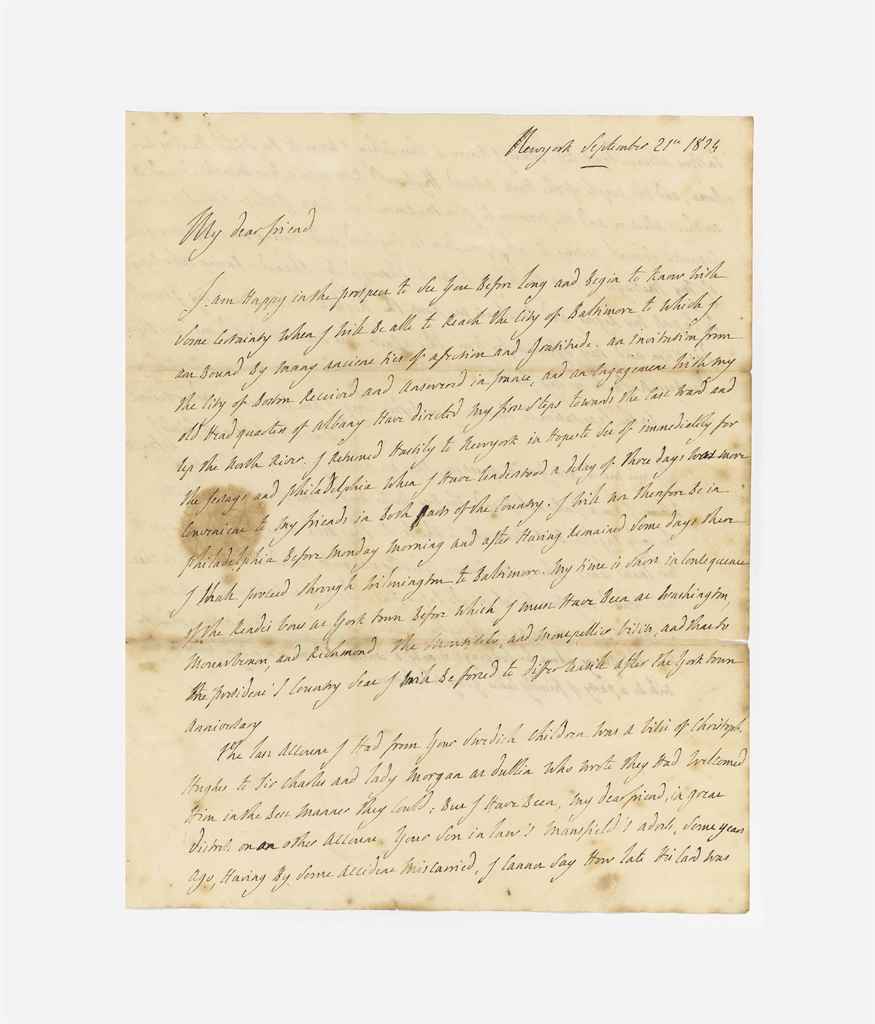 Newyork September 21st 1824
My dear friend
I am Happy in the prospect to See You Before long and Begin to Know With
Some Certainty When I will Be able to Reach the City of Baltimore to Which I
am Bound By Many ancient ties of affection and Gratitude. an invitation from
the City of Boston Received and answered in france, and an Engagement With my
old Head quarters of Albany Have directed My first Steps towards the East Ward and
Up the North River. I Returned Hastily to Newyork in Hopes to See of immediately for
the jerseys and philadelphia When I Have Understood a delay of three days Was more
Convenient to My friends in Both parts of the Country. I will not therefore Be in
philadelphia Before Monday Morning and after Having Remained Some days there
I shall proceed through Wilmington to Baltimore. My time is Short in Consequence
of the Rendez Vous at York town Before Which I must Have Been at Washington,
Mount Vernon, and Richmond. the Monticello, and Montpellier Visits, and that to
the president's Country Seat I will Be forced to differ Untill after the York town
anniversary
The last Account I Had from Your Swedish Children Was a Visit of Christoph.
Hughes to Sir Charles and lady Morgan at Dublin Who wrote they Had Welcomed
Him in the Best Manner they Could; But I Have Been, My dear friend, in great
distress on an other Account Your Son in law's Mansfield's adress, Some years
ago, Having By Some accident Miscarried, I Cannot Say How late His Card was